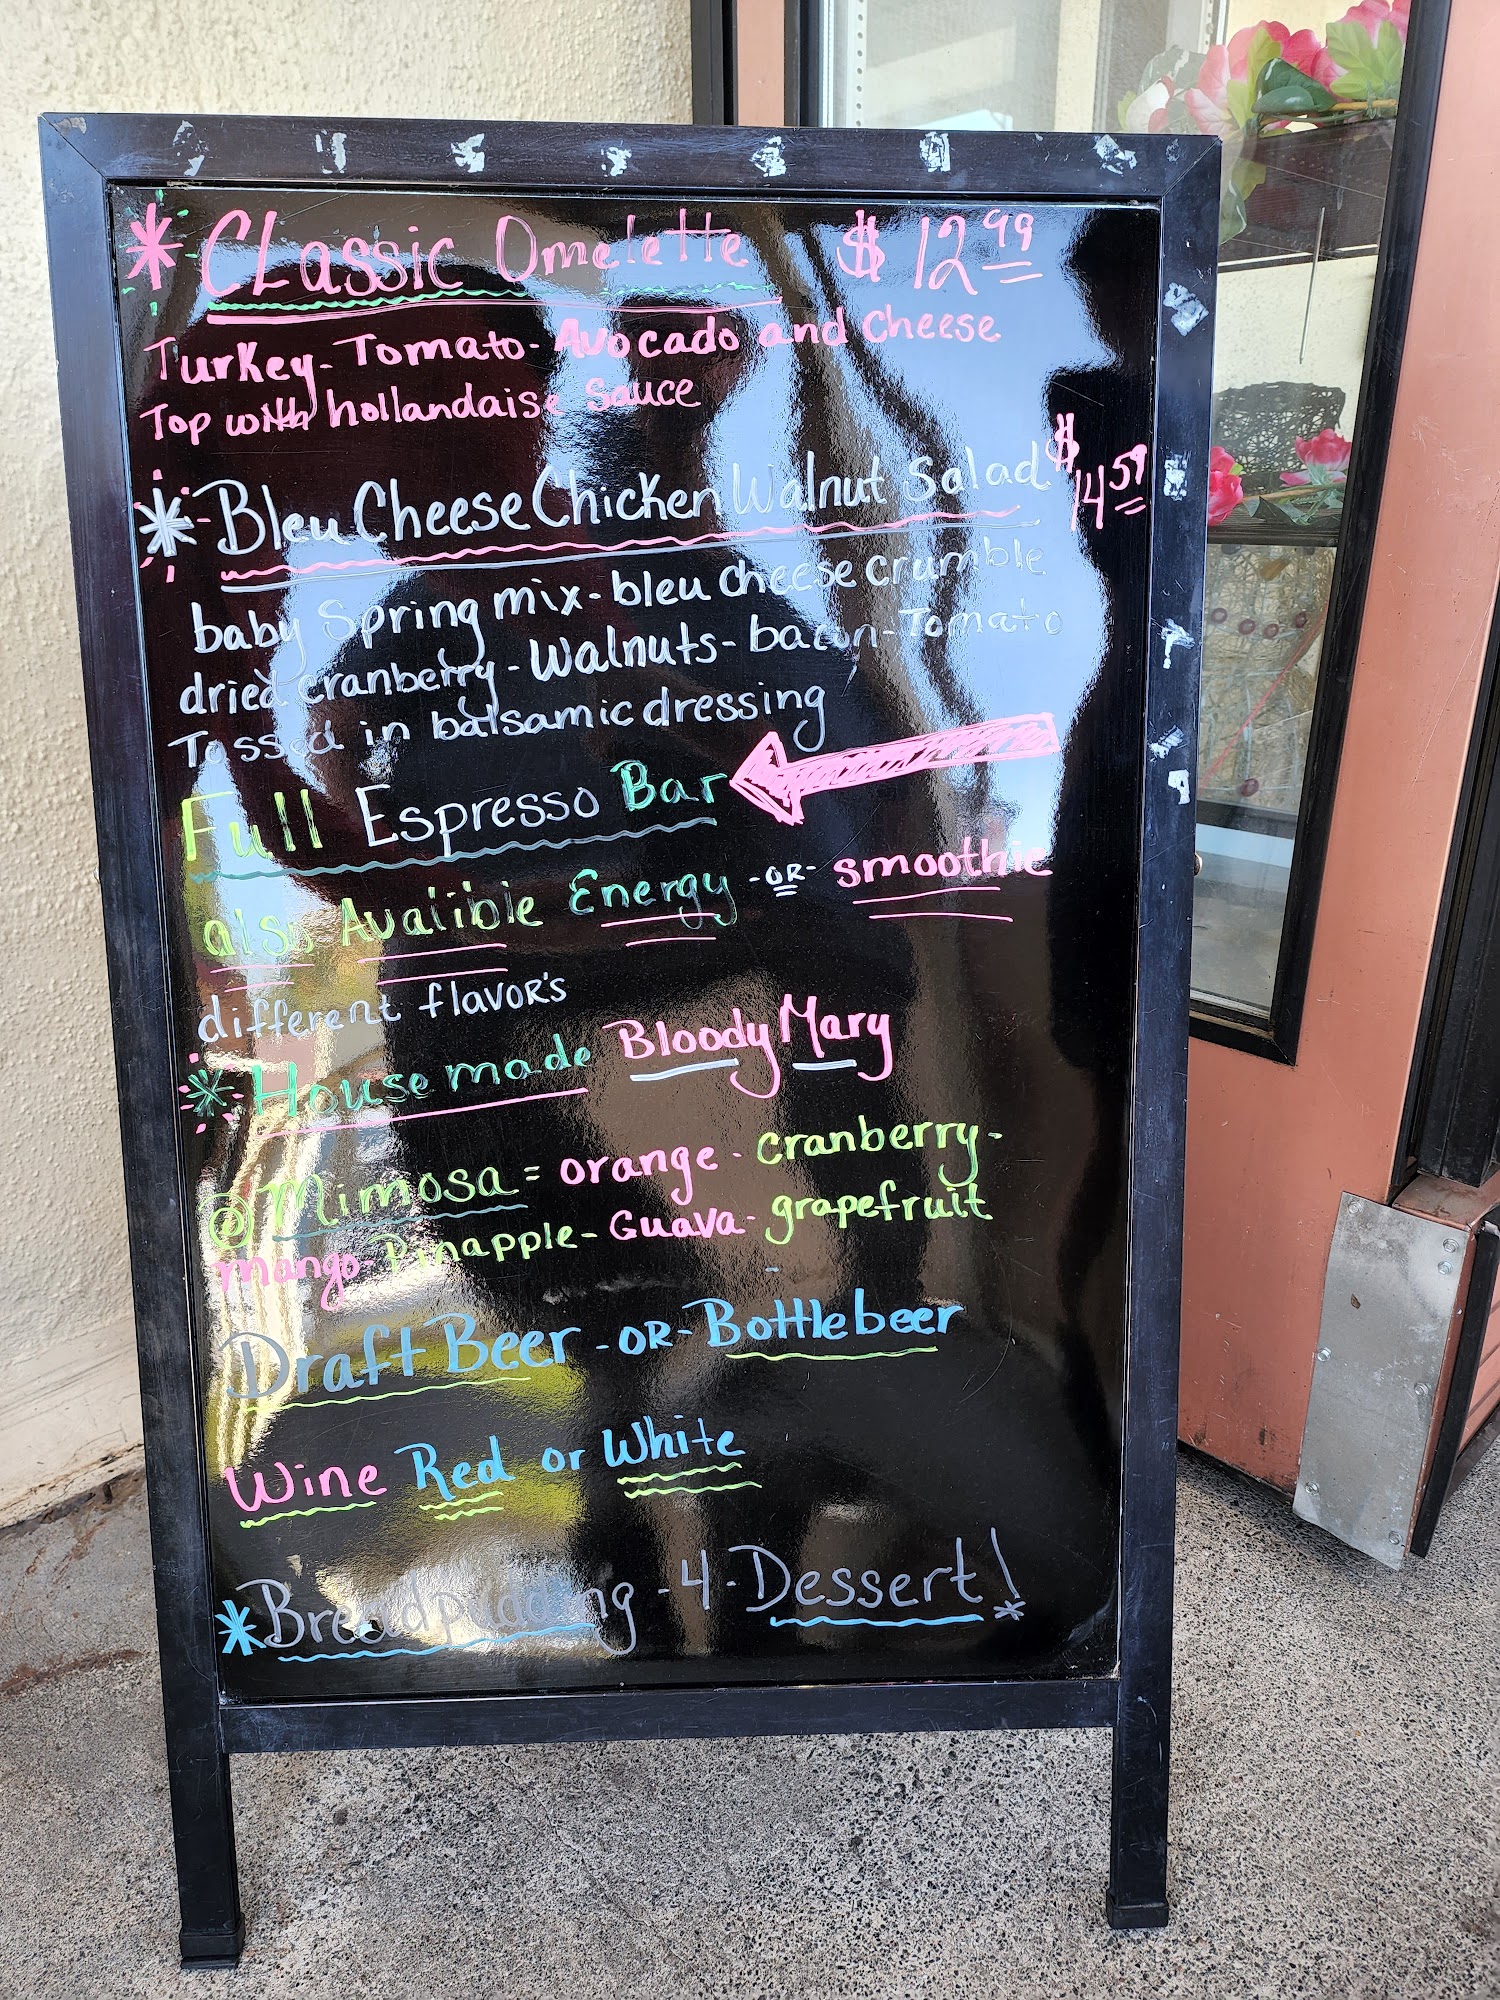 * Classic Omelette $12.99
Turkey - Tomato - Avocado and cheese
Top with hollandaise Sauce
* Bleu Cheese Chicken Walnut Salad $14.59
baby Spring mix - bleu cheese crumble
dried cranberry - Walnuts - bacon - Tomato
Tossed in balsamic dressing
Full Espresso Bar
also Avalible Energy -OR- smoothie
different flavor's
* House made Bloody Mary
@ Mimosa = orange - cranberry -
mango - Pinapple - Guava - grapefruit
Draft Beer - OR - Bottle beer
Wine Red or White
* Breadpudding - 4 - Dessert!